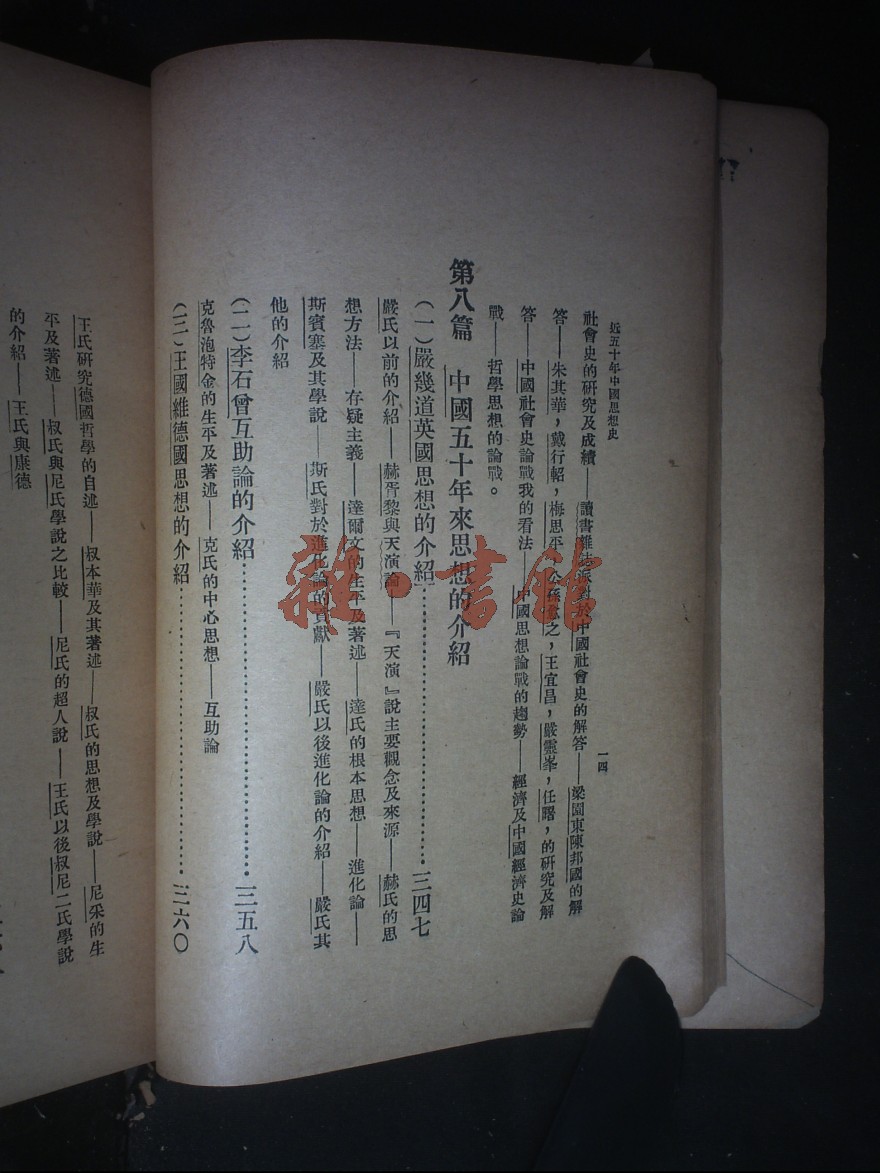 近五十年中國思想史
一四
社會史的研究及成績——讀書雜誌派對於中國社會史的解答——梁園東陳邦國的解
答——朱其華，戴行軺，梅思平，公孫愈之，王宜昌，嚴靈峯，任曙，的研究及解
答——中國社會史論戰我的看法——中國思想論戰的趨勢——經濟及中國經濟史論
戰——哲學思想的論戰。
第八篇 中國五十年來思想的介紹
（一）嚴幾道英國思想的介紹…………………………三四七
嚴氏以前的介紹——赫胥黎與天演論——『天演』說主要觀念及來源——赫氏的思
想方法——存疑主義——達爾文的生平及著述——達氏的根本思想——進化論——
斯賓塞及其學說——斯氏對於進化論的貢獻——嚴氏以後進化論的介紹——嚴氏其
他的介紹
（二）李石曾互助論的介紹…………………………三五八
克魯泡特金的生平及著述——克氏的中心思想——互助論
（三）王國維德國思想的介紹…………………………三六〇
王氏研究德國哲學的自述——叔本華及其著述——叔氏的思想及學說——尼采的生
平及著述——叔氏與尼氏學說之比較——尼氏的超人說——王氏以後叔尼二氏學說
的介紹——王氏與康德
雜·書館